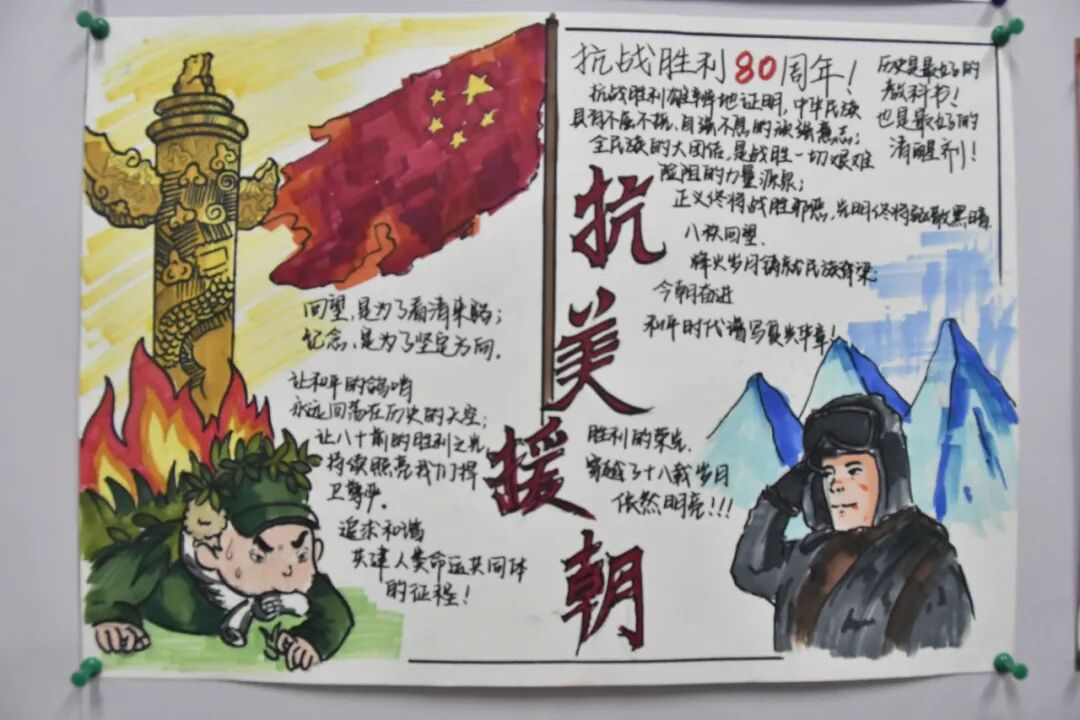 抗战胜利80周年！
抗战胜利雄辩地证明，中华民族
具有不屈不挠，自强不息的顽强意志；
全民族的大团结，是战胜一切艰难
险阻的力量源泉；
正义终将战胜邪恶，光明终将驱散黑暗
八秩回望、
烽火岁月铸就民族脊梁；
今朝奋进
和平时代谱写复兴华章！
历史是最好的
教科书！
也是最好的
清醒剂！
抗美援朝
回望，是为了看清来路；
纪念，是为了坚定方向。
让和平的鸽哨
永远回荡在历史的天空；
让八十前的胜利之光
持续照亮我们捍
卫尊严。
追求和谐
共建人类命运共同体
的征程！
胜利的荣光
穿越了十八载岁月
依然明亮！！！